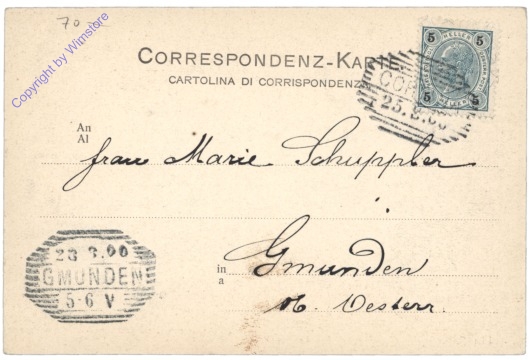 70
Copyright by Wimstore
CORRESPONDENZ-KARTE
CARTOLINA DI CORRISPONDENZA
5 HELLER 5
5 HELLER 5
25.3.00
An
Al
Frau Marie Schuppler
23 3.00
GMUNDEN
5-6 V
in
a
Gmunden
Ob. Oesterr.